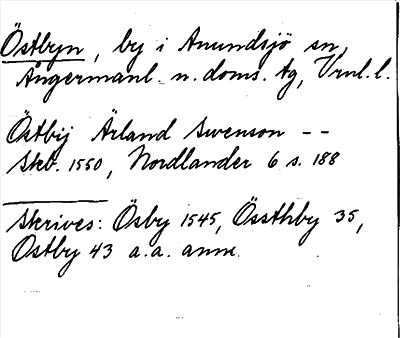 Östbyn, by i Anundsjö sn,
Ångermanl. n. doms. tg, Vrnl. l.
Östbÿ Ärland Swenson --
Skb. 1550, Nordlander 6 s. 188
Skrives: Ösby 1545, Össthby 35,
Ostby 43 a.a. anm.